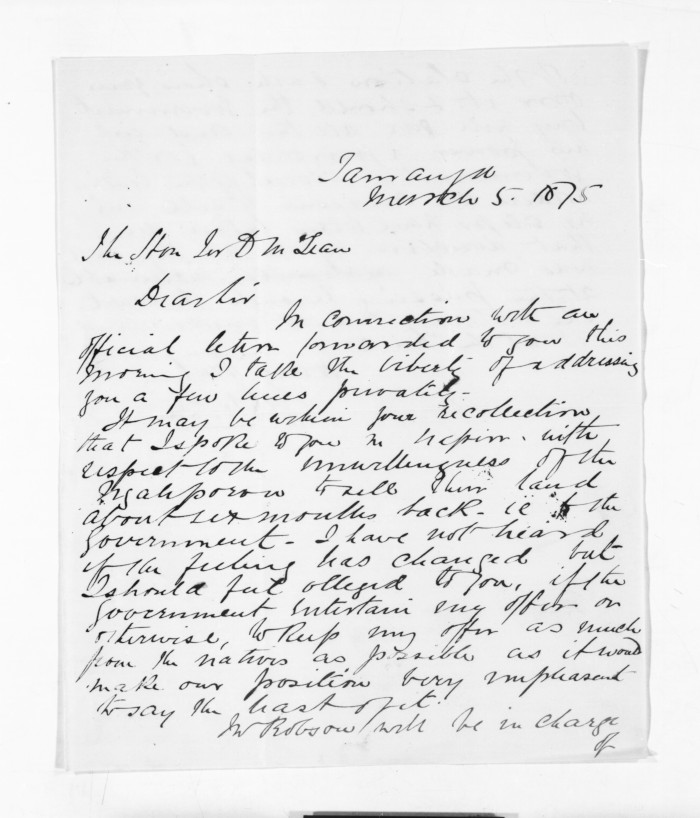 Tauranga
March 5. 1875
The Hon Sir D McLean
Dear Sir
In connection with an
official letter forwarded to you this
morning I take the liberty of addressing
you a few lines privately-
It may be within your recollection
that I spoke to you in Napier. with
respect to the unwillingness of the
to sell their land
about six months back - ie to the
Government - I have not heard
if the feeling has changed but
I should feel obliged to you, if the
Government entertain my offer or
otherwise, to keep my offer as much
from the natives as possible as it would
make our position very unpleasant
to say the least of it.
Mr Robson will be in charge
of